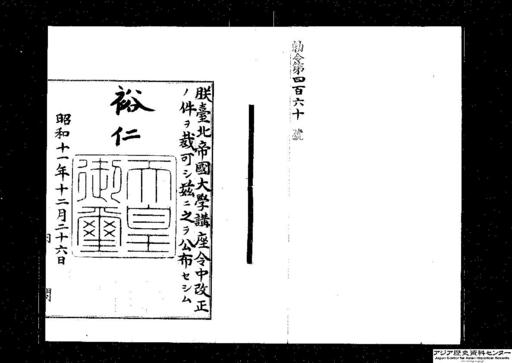 勅令第四百六十號
朕臺北帝國大學講座令中改正
ノ件ヲ裁可シ茲ニ之ヲ公布セシム
裕仁
天皇御璽
昭和十一年十二月二十六日
内閣
アジア歴史資料センター
Japan Center for Asian Historical Records